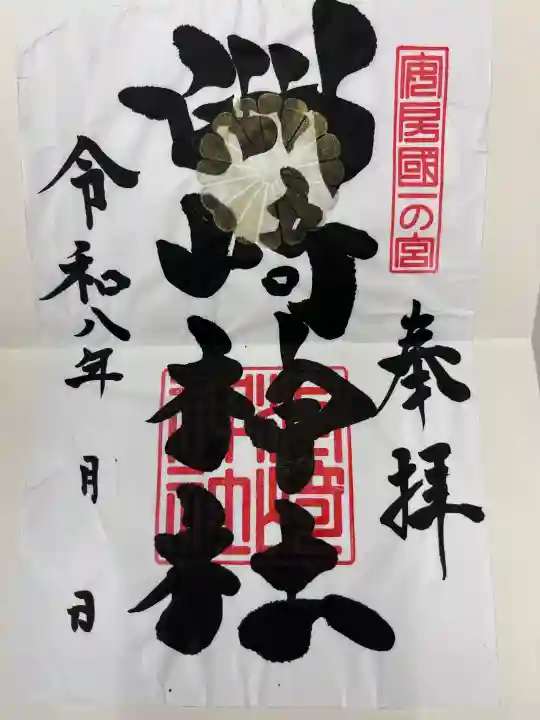 安房國一の宮
奉拝
洲崎神社
洲崎神社
令和八年 月 日